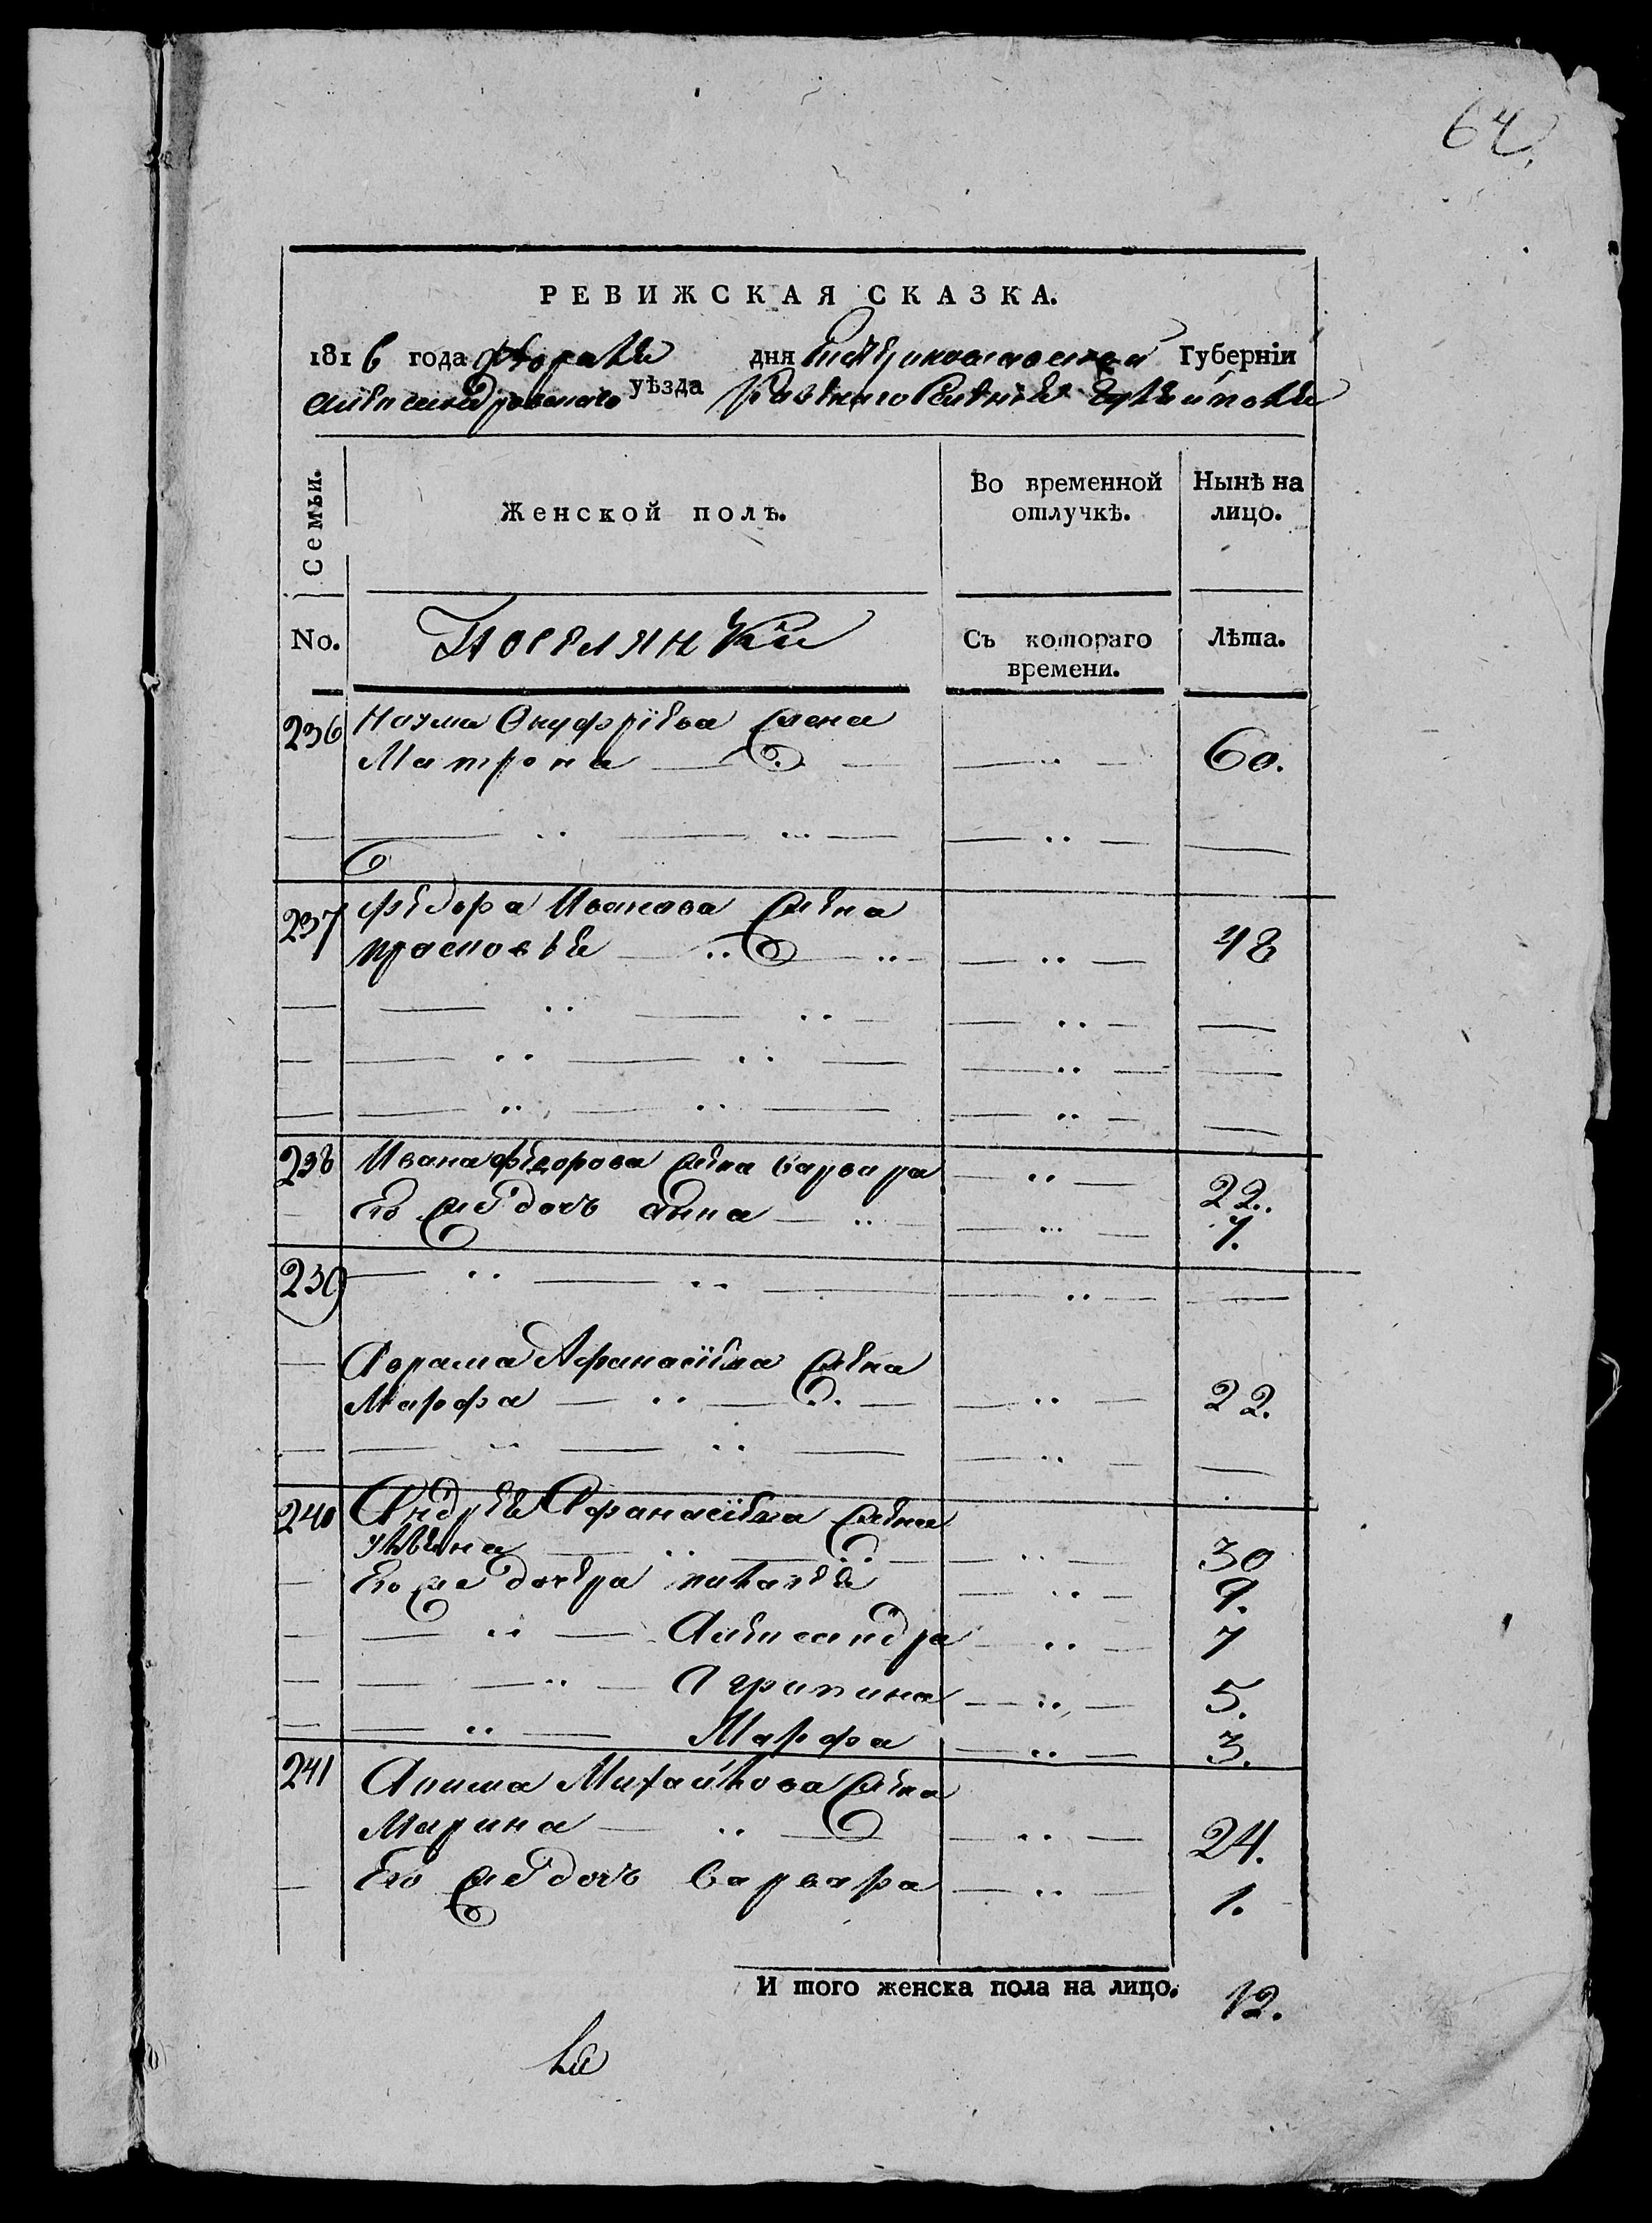 64.
РЕВИЖСКАЯ СКАЗКА.
1816 года февраля дня Екатеринославской Губерніи
Александровскаго уѣзда казеннаго селенія
Семьи.
Женской полъ.
Во временной отлучкѣ.
Нынѣ на лицо.
No.
Поселянки
Съ котораго времени.
Лѣта.
236 Наума Онуфріева жена
Матрона — 60.
237 Федора Иванова жена
прасковья — 48
238 Ивана федорова жена варвара — 22.
Его же дочь анна — 7.
239
Аврама Афанасіева жена
Марфа — 22.
240 Андрея Афанасіева жена
30
Его же дочеря наталья — 9.
Александра — 7
Агрипина — 5.
Марфа — 3.
241 Акима Михайлова жена
Марина — 24.
Его же дочь варвара — 1.
И того женска пола на лицо. 12.